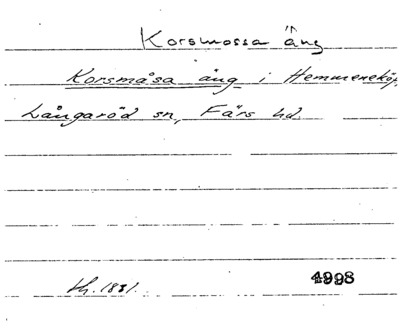 Korsmossa äng
Korsmåsa äng i Hemmeneköp,
Långaröd sn, Färs hd
1831.
4998